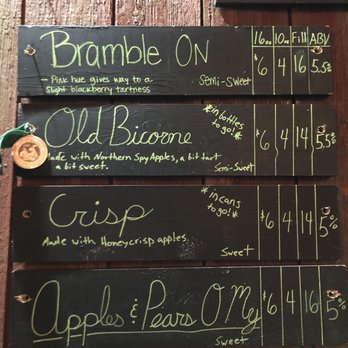 16oz 10oz Fill ABV
Bramble ON $6 4 16 5.5%
- Pink hue gives way to a
slight blackberry tartness
Semi-Sweet
Old Bicorne $6 4 14 5.5%
*in bottles
to go!*
Made with Northern Spy Apples, a bit tart
a bit sweet.
Semi-Sweet
Crisp $6 4 14 5%
*in cans
to go!*
Made with Honeycrisp apples
Sweet
Apples & Pears O My $6 4 16 5%
Sweet